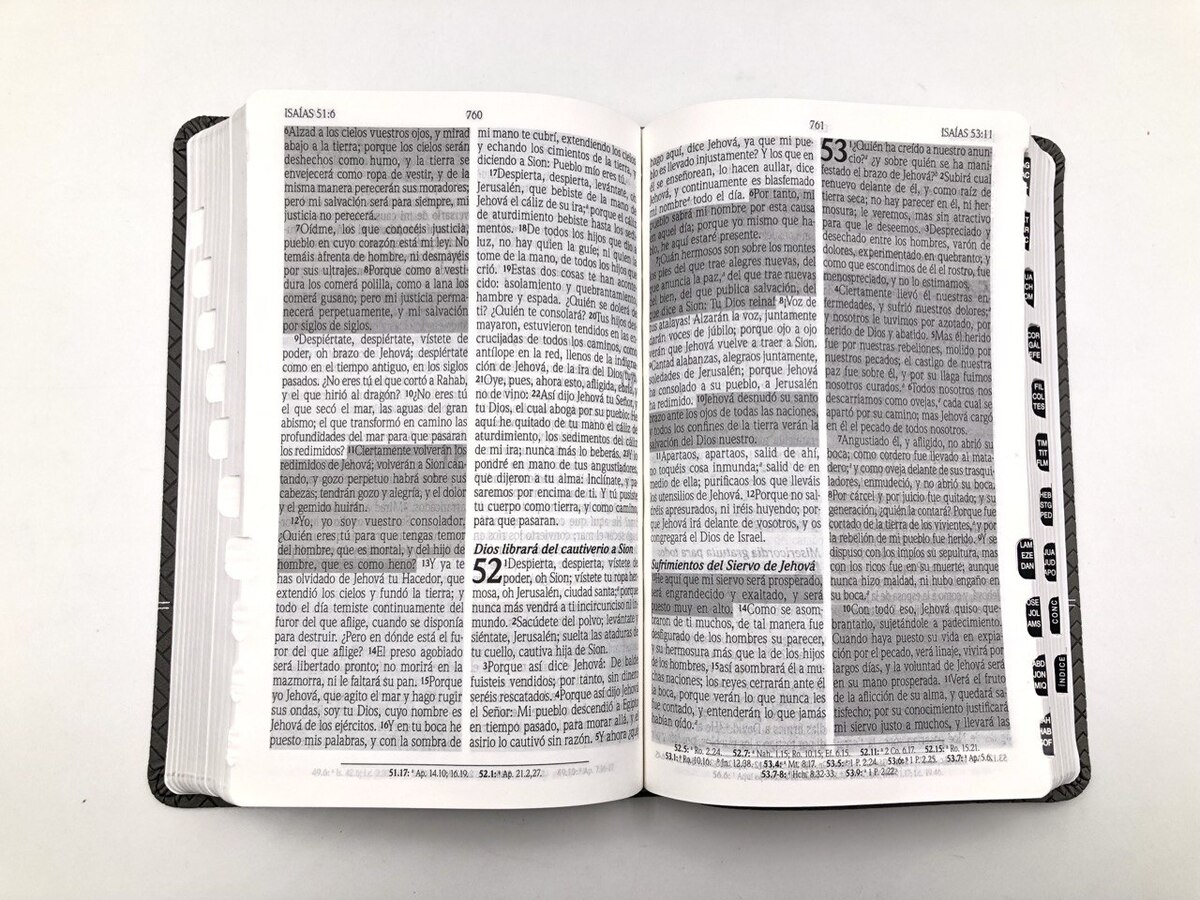 ISAÍAS 51:6
760
⁶Alzad a los cielos vuestros ojos, y mirad
abajo a la tierra; porque los cielos serán
deshechos como humo, y la tierra se
envejecerá como ropa de vestir, y de la
misma manera perecerán sus moradores;
pero mi salvación será para siempre, mi
justicia no perecerá.
⁷Oídme, los que conocéis justicia,
pueblo en cuyo corazón está mi ley. No
temáis afrenta de hombre, ni desmayéis
por sus ultrajes. ⁸Porque como a vesti-
dura los comerá polilla, como a lana los
comerá gusano; pero mi justicia perma-
necerá perpetuamente, y mi salvación
por siglos de siglos.
⁹Despiértate, despiértate, vístete de
poder, oh brazo de Jehová; despiértate
como en el tiempo antiguo, en los siglos
pasados. ¿No eres tú el que cortó a Rahab,
y el que hirió al dragón? ¹⁰¿No eres tú
el que secó el mar, las aguas del gran
abismo; el que transformó en camino las
profundidades del mar para que pasaran
los redimidos? ¹¹Ciertamente volverán los
redimidos de Jehová; volverán a Sion can-
tando, y gozo perpetuo habrá sobre sus
cabezas; tendrán gozo y alegría, y el dolor
y el gemido huirán.
¹²Yo, yo soy vuestro consolador.
¿Quién eres tú para que tengas temor
del hombre, que es mortal, y del hijo de
hombre, que es como heno? ¹³Y ya te
has olvidado de Jehová tu Hacedor, que
extendió los cielos y fundó la tierra; y
todo el día temiste continuamente del
furor del que aflige, cuando se disponía
para destruir. ¿Pero en dónde está el fu-
ror del que aflige? ¹⁴El preso agobiado
será libertado pronto; no morirá en la
mazmorra, ni le faltará su pan. ¹⁵Porque
yo Jehová, que agito el mar y hago rugir
sus ondas, soy tu Dios, cuyo nombre es
Jehová de los ejércitos. ¹⁶Y en tu boca he
puesto mis palabras, y con la sombra de
mi mano te cubrí, extendiendo los cielos
y echando los cimientos de la tierra, y
diciendo a Sion: Pueblo mío eres tú.
¹⁷Despierta, despierta, levántate, oh
Jerusalén, que bebiste de la mano de
Jehová el cáliz de su ira; porque el cáliz
de aturdimiento bebiste hasta los sedi-
mentos. ¹⁸De todos los hijos que dio a
luz, no hay quien la guíe; ni quien la
tome de la mano, de todos los hijos que
crió. ¹⁹Estas dos cosas te han aconte-
cido: asolamiento y quebrantamiento,
hambre y espada. ¿Quién se dolerá de
ti? ¿Quién te consolará? ²⁰Tus hijos des-
mayaron, estuvieron tendidos en las en-
crucijadas de todos los caminos, como
antílope en la red, llenos de la indigna-
ción de Jehová, de la ira del Dios tuyo.
²¹Oye, pues, ahora esto, afligida, ebria, y
no de vino: ²²Así dijo Jehová tu Señor, y
tu Dios, el cual aboga por su pueblo: He
aquí he quitado de tu mano el cáliz de
aturdimiento, los sedimentos del cáliz
de mi ira; nunca más lo beberás. ²³Y lo
pondré en mano de tus angustiadores,
que dijeron a tu alma: Inclínate, y pa-
saremos por encima de ti. Y tú pusiste
tu cuerpo como tierra, y como camino,
para que pasaran.
Dios librará del cautiverio a Sion
52 ¹Despierta, despierta, vístete de
poder, oh Sion; vístete tu ropa her-
mosa, oh Jerusalén, ciudad santa; porque
nunca más vendrá a ti incircunciso ni in-
mundo. ²Sacúdete del polvo; levántate y
siéntate, Jerusalén; suelta las ataduras de
tu cuello, cautiva hija de Sion.
³Porque así dice Jehová: De balde
fuisteis vendidos; por tanto, sin dinero
seréis rescatados. ⁴Porque así dijo Jehová
el Señor: Mi pueblo descendió a Egipto
en tiempo pasado, para morar allá, y el
asirio lo cautivó sin razón. ⁵Y ahora qué
51.17: Ap. 14.10; 16.19. 52.1: Ap. 21.2,27.
761
ISAÍAS 53:11
hago aquí, dice Jehová, ya que mi pue-
blo es llevado injustamente? Y los que en
él se enseñorean, lo hacen aullar, dice
Jehová, y continuamente es blasfemado
mi nombre todo el día. ⁶Por tanto, mi
pueblo sabrá mi nombre por esta causa
en aquel día; porque yo mismo que ha-
blo, he aquí estaré presente.
⁷¡Cuán hermosos son sobre los montes
los pies del que trae alegres nuevas, del
que anuncia la paz, del que trae nuevas
del bien, del que publica salvación, del
que dice a Sion: Tu Dios reina! ⁸¡Voz de
tus atalayas! Alzarán la voz, juntamente
darán voces de júbilo; porque ojo a ojo
verán que Jehová vuelve a traer a Sion.
⁹Cantad alabanzas, alegraos juntamente,
soledades de Jerusalén; porque Jehová
ha consolado a su pueblo, a Jerusalén
ha redimido. ¹⁰Jehová desnudó su santo
brazo ante los ojos de todas las naciones,
y todos los confines de la tierra verán la
salvación del Dios nuestro.
¹¹Apartaos, apartaos, salid de ahí,
no toquéis cosa inmunda; salid de en
medio de ella; purificaos los que lleváis
los utensilios de Jehová. ¹²Porque no sal-
dréis apresurados, ni iréis huyendo; por-
que Jehová irá delante de vosotros, y os
congregará el Dios de Israel.
Sufrimientos del Siervo de Jehová
¹³He aquí que mi siervo será prosperado,
será engrandecido y exaltado, y será
puesto muy en alto. ¹⁴Como se asom-
braron de ti muchos, de tal manera fue
desfigurado de los hombres su parecer,
y su hermosura más que la de los hijos
de los hombres, ¹⁵así asombrará él a mu-
chas naciones; los reyes cerrarán ante él
la boca, porque verán lo que nunca les
fue contado, y entenderán lo que jamás
habían oído.
53 ¹¿Quién ha creído a nuestro anun-
cio? ¿y sobre quién se ha mani-
festado el brazo de Jehová? ²Subirá cual
renuevo delante de él, y como raíz de
tierra seca; no hay parecer en él, ni her-
mosura; le veremos, mas sin atractivo
para que le deseemos. ³Despreciado y
desechado entre los hombres, varón de
dolores, experimentado en quebranto; y
como que escondimos de él el rostro, fue
menospreciado, y no lo estimamos.
⁴Ciertamente llevó él nuestras en-
fermedades, y sufrió nuestros dolores;
y nosotros le tuvimos por azotado, por
herido de Dios y abatido. ⁵Mas él herido
fue por nuestras rebeliones, molido por
nuestros pecados; el castigo de nuestra
paz fue sobre él, y por su llaga fuimos
nosotros curados. ⁶Todos nosotros nos
descarriamos como ovejas, cada cual se
apartó por su camino; mas Jehová cargó
en él el pecado de todos nosotros.
⁷Angustiado él, y afligido, no abrió su
boca; como cordero fue llevado al mata-
dero; y como oveja delante de sus trasqui-
ladores, enmudeció, y no abrió su boca.
⁸Por cárcel y por juicio fue quitado; y su
generación, ¿quién la contará? Porque fue
cortado de la tierra de los vivientes, y por
la rebelión de mi pueblo fue herido. ⁹Y se
dispuso con los impíos su sepultura, mas
con los ricos fue en su muerte; aunque
nunca hizo maldad, ni hubo engaño en
su boca.
¹⁰Con todo eso, Jehová quiso que-
brantarlo, sujetándole a padecimiento.
Cuando haya puesto su vida en expia-
ción por el pecado, verá linaje, vivirá por
largos días, y la voluntad de Jehová será
en su mano prosperada. ¹¹Verá el fruto
de la aflicción de su alma, y quedará sa-
tisfecho; por su conocimiento justificará
mi siervo justo a muchos, y llevará las
52.5: Ro. 2.24. 52.7: Nah. 1.15; Ro. 10.15; Ef. 6.15. 52.11: 2 Co. 6.17. 52.15: Ro. 15.21.
53.1: Ro. 10.16 Jn. 12.38. 53.4: Mt. 8.17. 53.5: 1 P. 2.24. 53.6: 1 P. 2.25. 53.7: Ap. 5.6
53.7-8: Hch. 8.32-33. 53.9: 1 P. 2.22.
COR
GÁL
EFE
FIL
COL
TES
TIM
TIT
FLM
HEB
STG
PED
LAM
EZE
DAN
JUA
JUD
APO
OSE
JOL
AMS
CONC
ABD
JON
MIQ
ÍNDICE
NAH
HAB
SOF